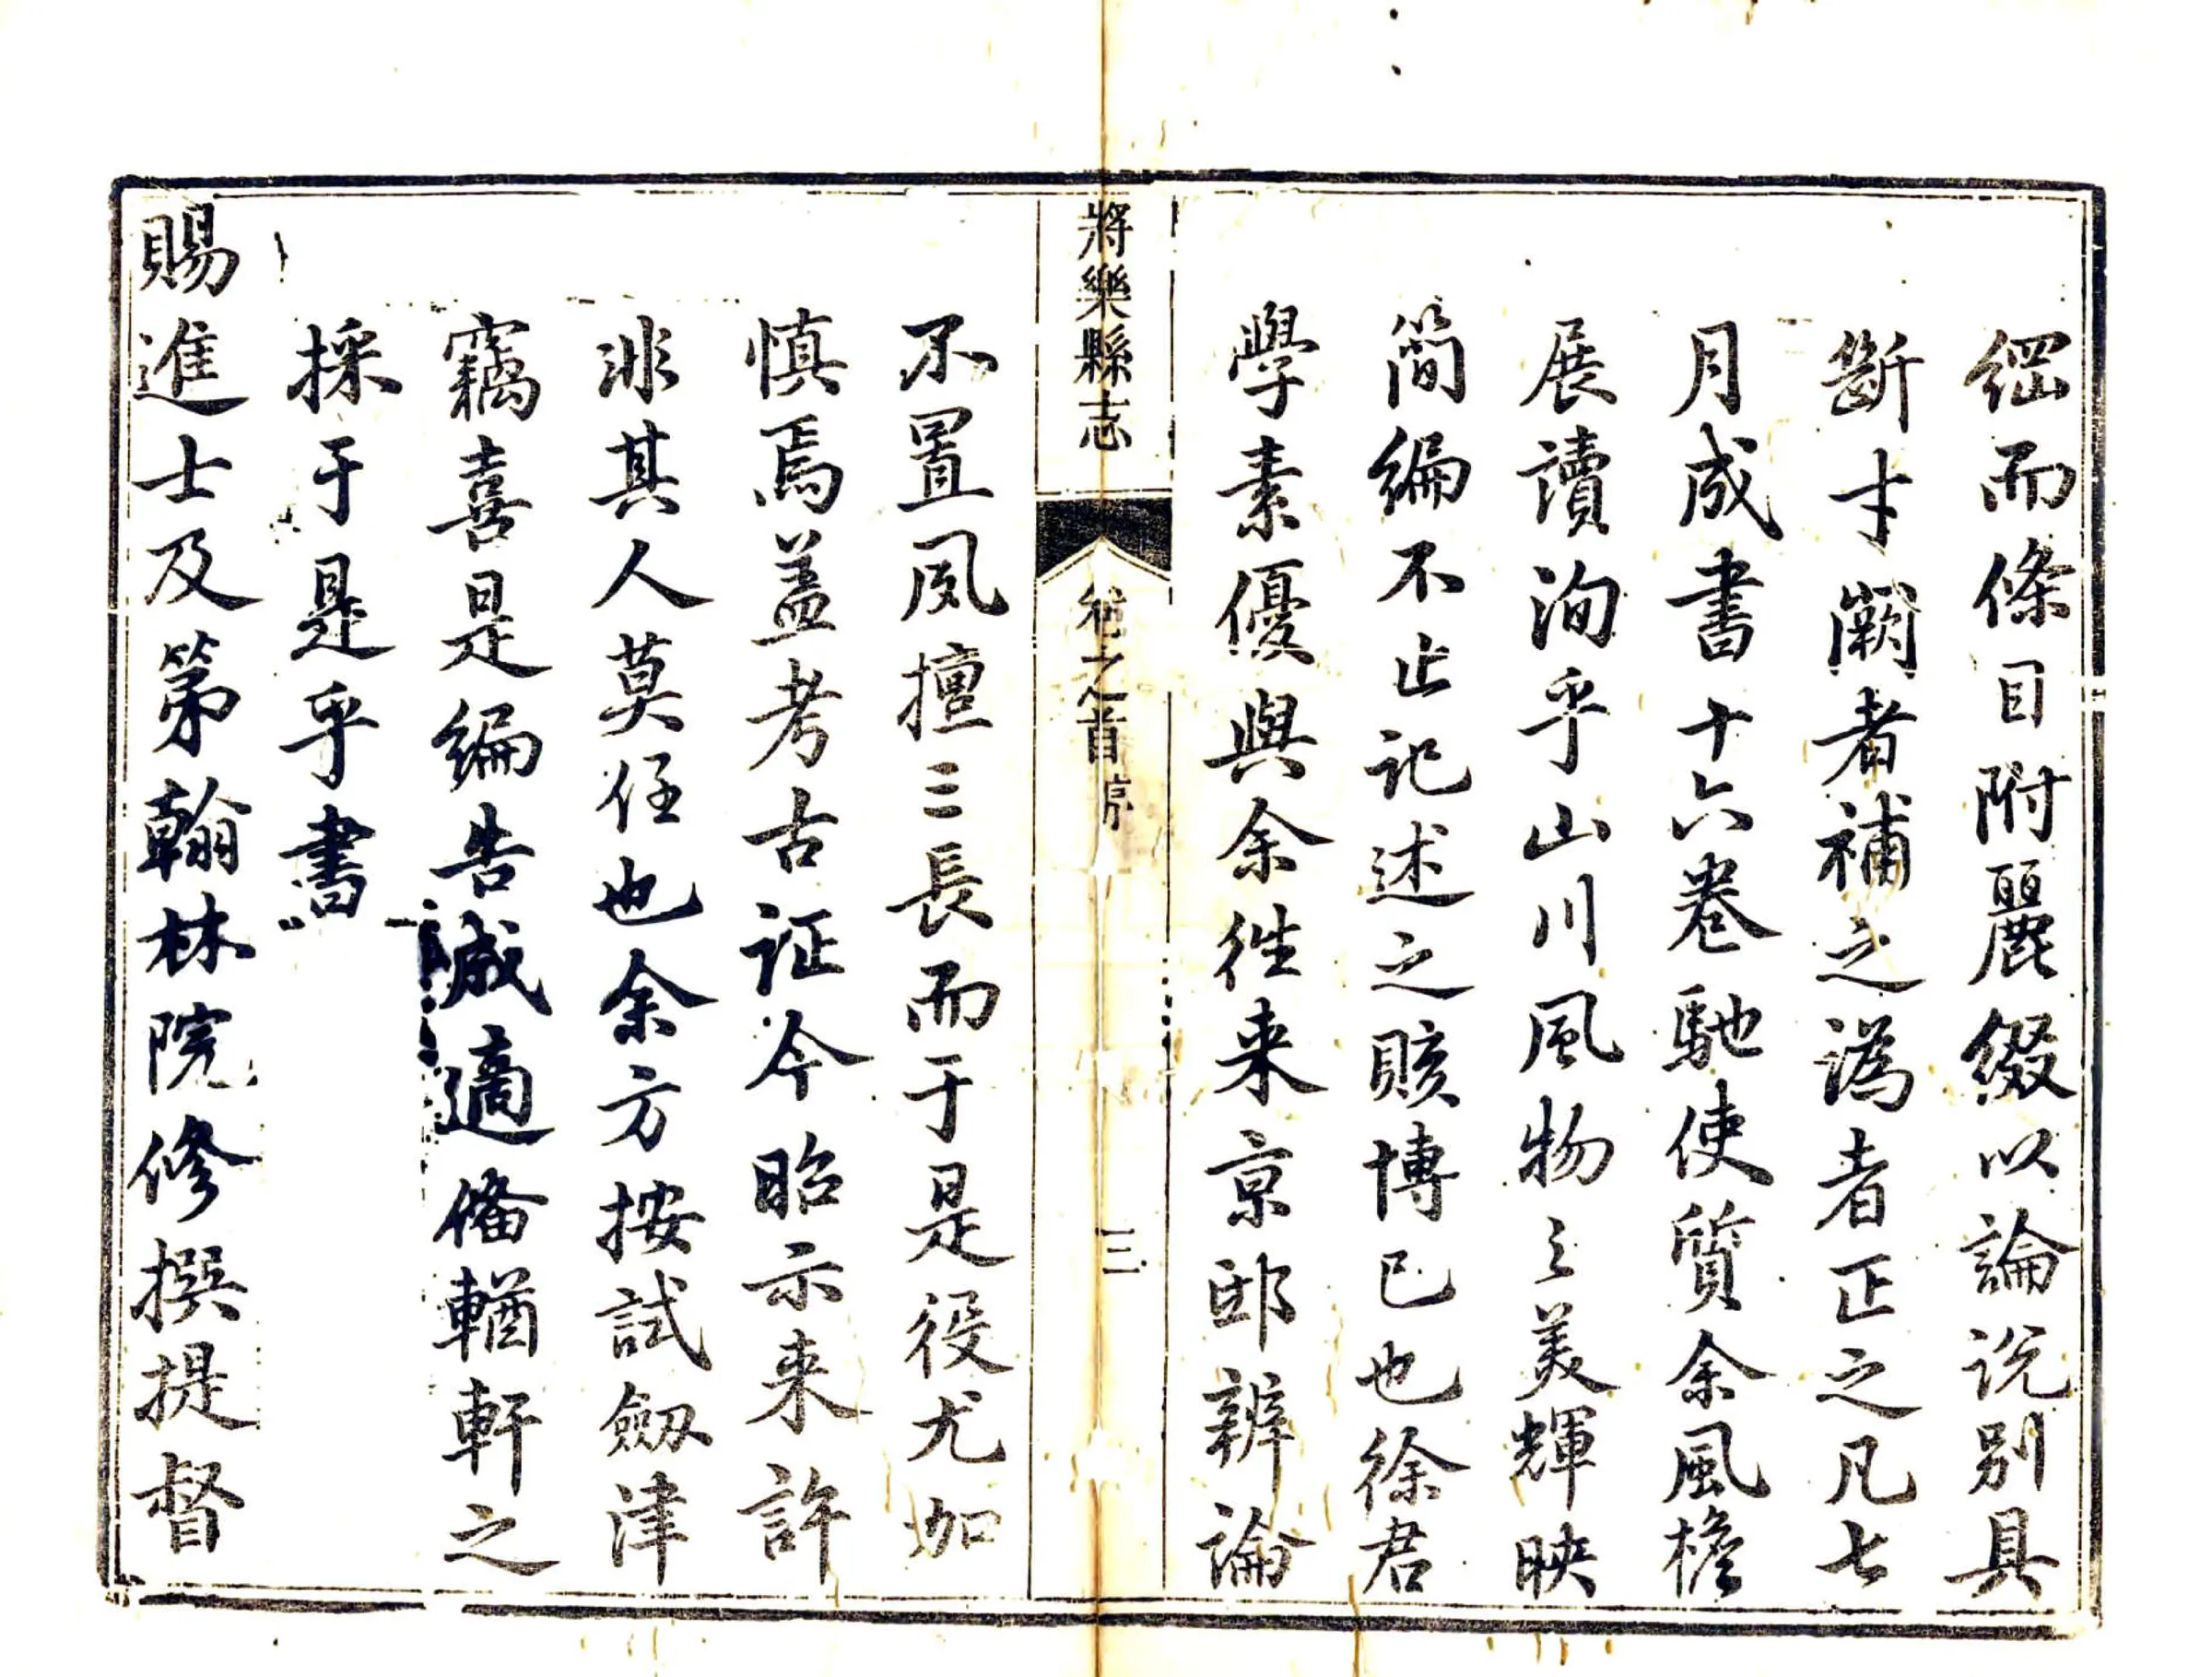 綱而條目附麗綴以論説别具
斷才闕者補之譌者正之凡七
月成書十六卷馳使質余風檐
展讀洵乎山川風物之美輝映
簡編不止記述之賅博已也徐君
學素優與余徃来京邸辨論
將樂縣志
卷之首
序
三
不置夙擅三長而于是役尤加
慎焉盖考古証今昭示来許
非其人莫任也余方按試劔津
竊喜是編告成適備輶軒之
採于是乎書
賜進士及第翰林院修撰提督